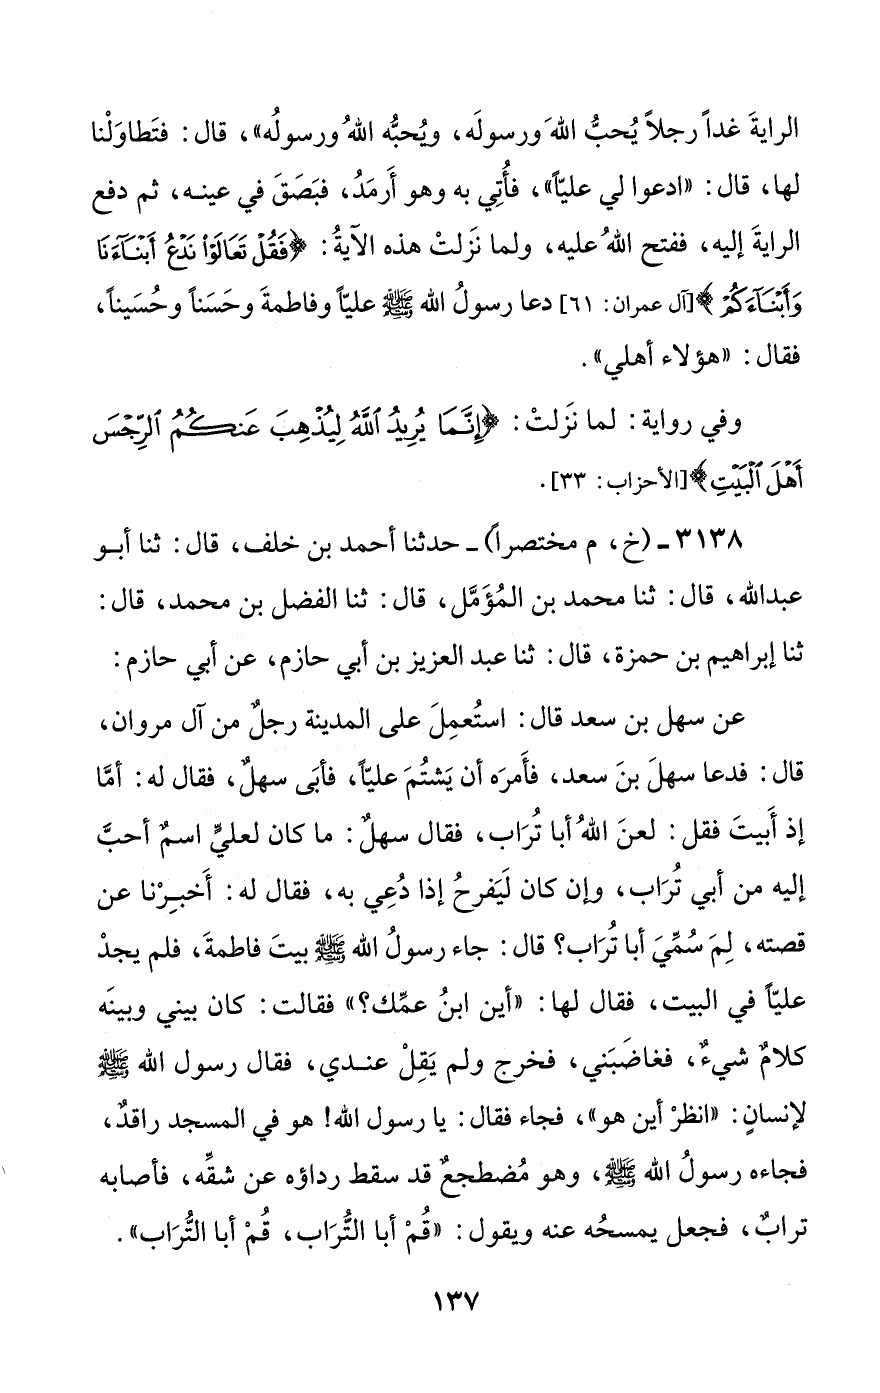 الرايةَ غداً رجلاً يُحبُّ اللهَ ورسولَه، ويُحبُّه اللهُ ورسولُه»، قال: فتَطاوَلْنا
لها، قال: «ادعوا لي عليّاً»، فأُتِي به وهو أَرمَدُ، فبَصَقَ في عينـه، ثم دفع
الرايةَ إليه، ففتح اللهُ عليه، ولما نَزَلتْ هذه الآيةُ: ﴿فَقُلْ تَعَالَوْا نَدْعُ أَبْنَآءَنَا
وَأَبْنَآءَكُمْ﴾ [آل عمران: ٦١] دعا رسولُ الله ﷺ عليّاً وفاطمةَ وحَسَناً وحُسَيناً،
فقال: «هؤلاء أهلي».
وفي رواية: لما نَزَلتْ: ﴿إِنَّمَا يُرِيدُ ٱللَّهُ لِيُذْهِبَ عَنكُمُ ٱلرِّجْسَ
أَهْلَ ٱلْبَيْتِ﴾ [الأحزاب: ٣٣].
٣١٣٨ ـ (خ، م مختصراً) ـ حدثنا أحمد بن خلف، قال: ثنا أبـو
عبدالله، قال: ثنا محمد بن المُؤَمَّل، قال: ثنا الفضل بن محمد، قال:
ثنا إبراهيم بن حمزة، قال: ثنا عبد العزيز بن أبي حازم، عن أبي حازم:
عن سهل بن سعد قال: استُعمِلَ على المدينة رجلٌ من آل مروان،
قال: فدعا سهلَ بنَ سعد، فأَمرَه أن يَشتُمَ عليّاً، فأبَى سهلٌ، فقال له: أمَّا
إذ أَبيتَ فقل: لعنَ اللهُ أبا تُرَاب، فقال سهلٌ: ما كان لعليٍّ اسمٌ أحبَّ
إليه من أبي تُرَاب، وإن كان لَيَفرحُ إذا دُعِي به، فقال له: أَخبِـرْنا عن
قصته، لِمَ سُمِّيَ أبا تُرَاب؟ قال: جاء رسولُ الله ﷺ بيتَ فاطمةَ، فلم يجدْ
عليّاً في البيت، فقال لها: «أين ابنُ عمِّك؟» فقالت: كان بيني وبينَه
كلامٌ شيءٌ، فغاضَبَني، فخرج ولم يَقِلْ عنـدي، فقال رسول الله ﷺ
لإنسانٍ: «انظرْ أين هو»، فجاء فقال: يا رسول الله! هو في المسجد راقدٌ،
فجاءه رسولُ الله ﷺ، وهو مُضطجعٌ قد سقط رداؤه عن شقِّه، فأصابه
ترابٌ، فجعل يمسحُه عنه ويقول: «قُمْ أبا التُّرَاب، قُمْ أبا التُّرَاب».
١٣٧